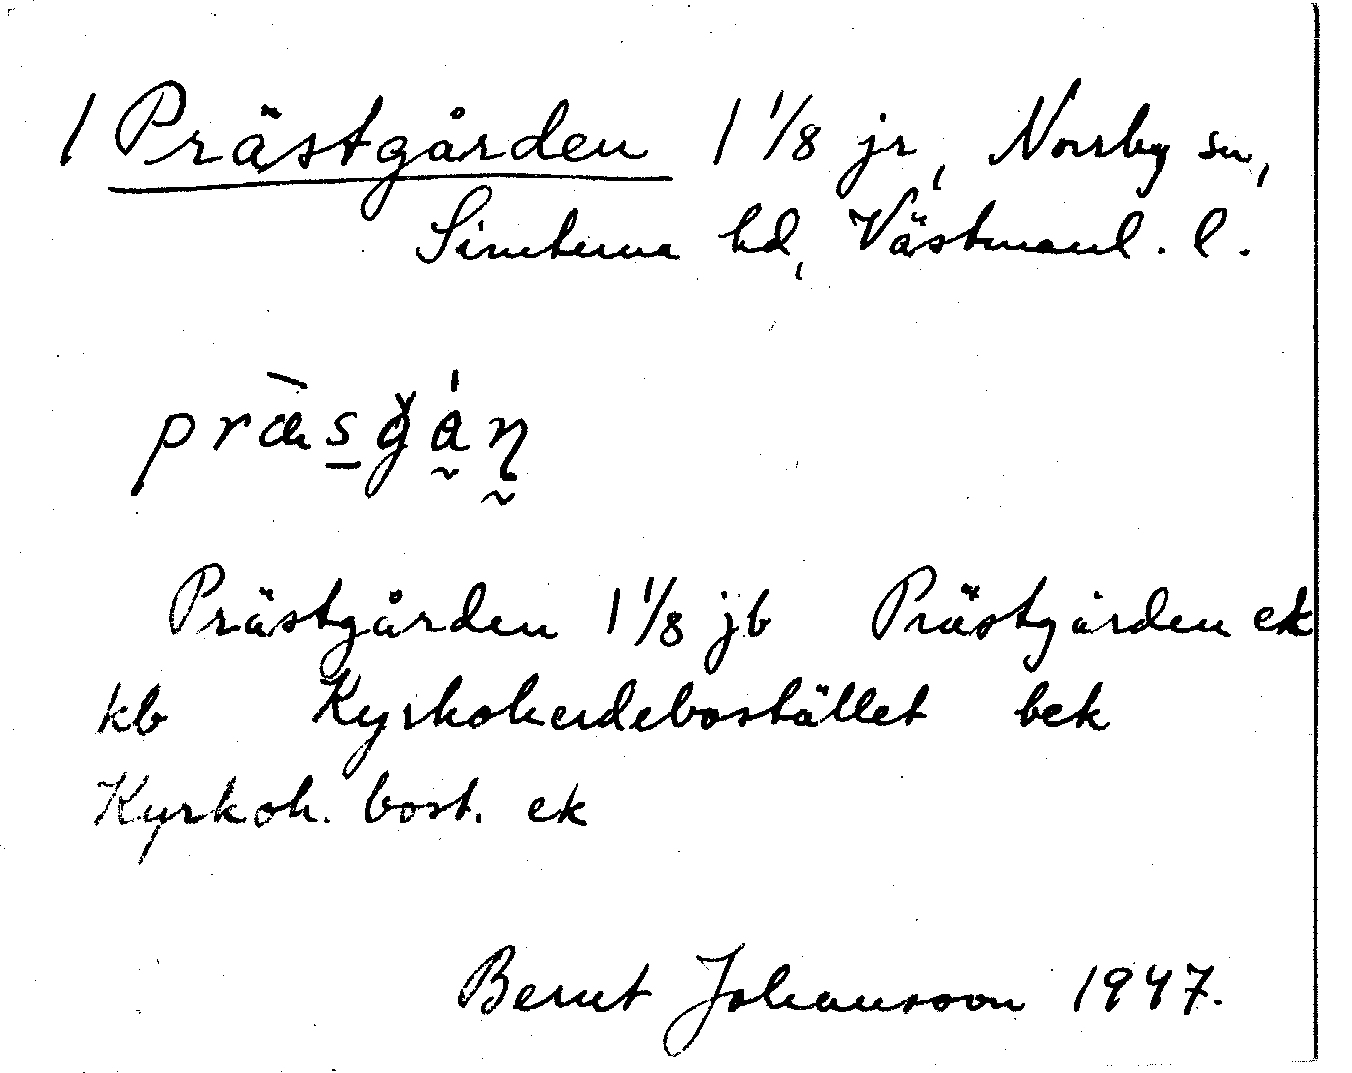 1 Prästgården 1 1/8 jr, Norrby sn,
Simtuna hd, Västmanl. l.
præ̀s̲gá̰ṇ
Prästgården 1 1/8 jb Prästgården ek
kb Kyrkoherdebostället bek
Kyrkoh. bost. ek
Bernt Johansson 1947.